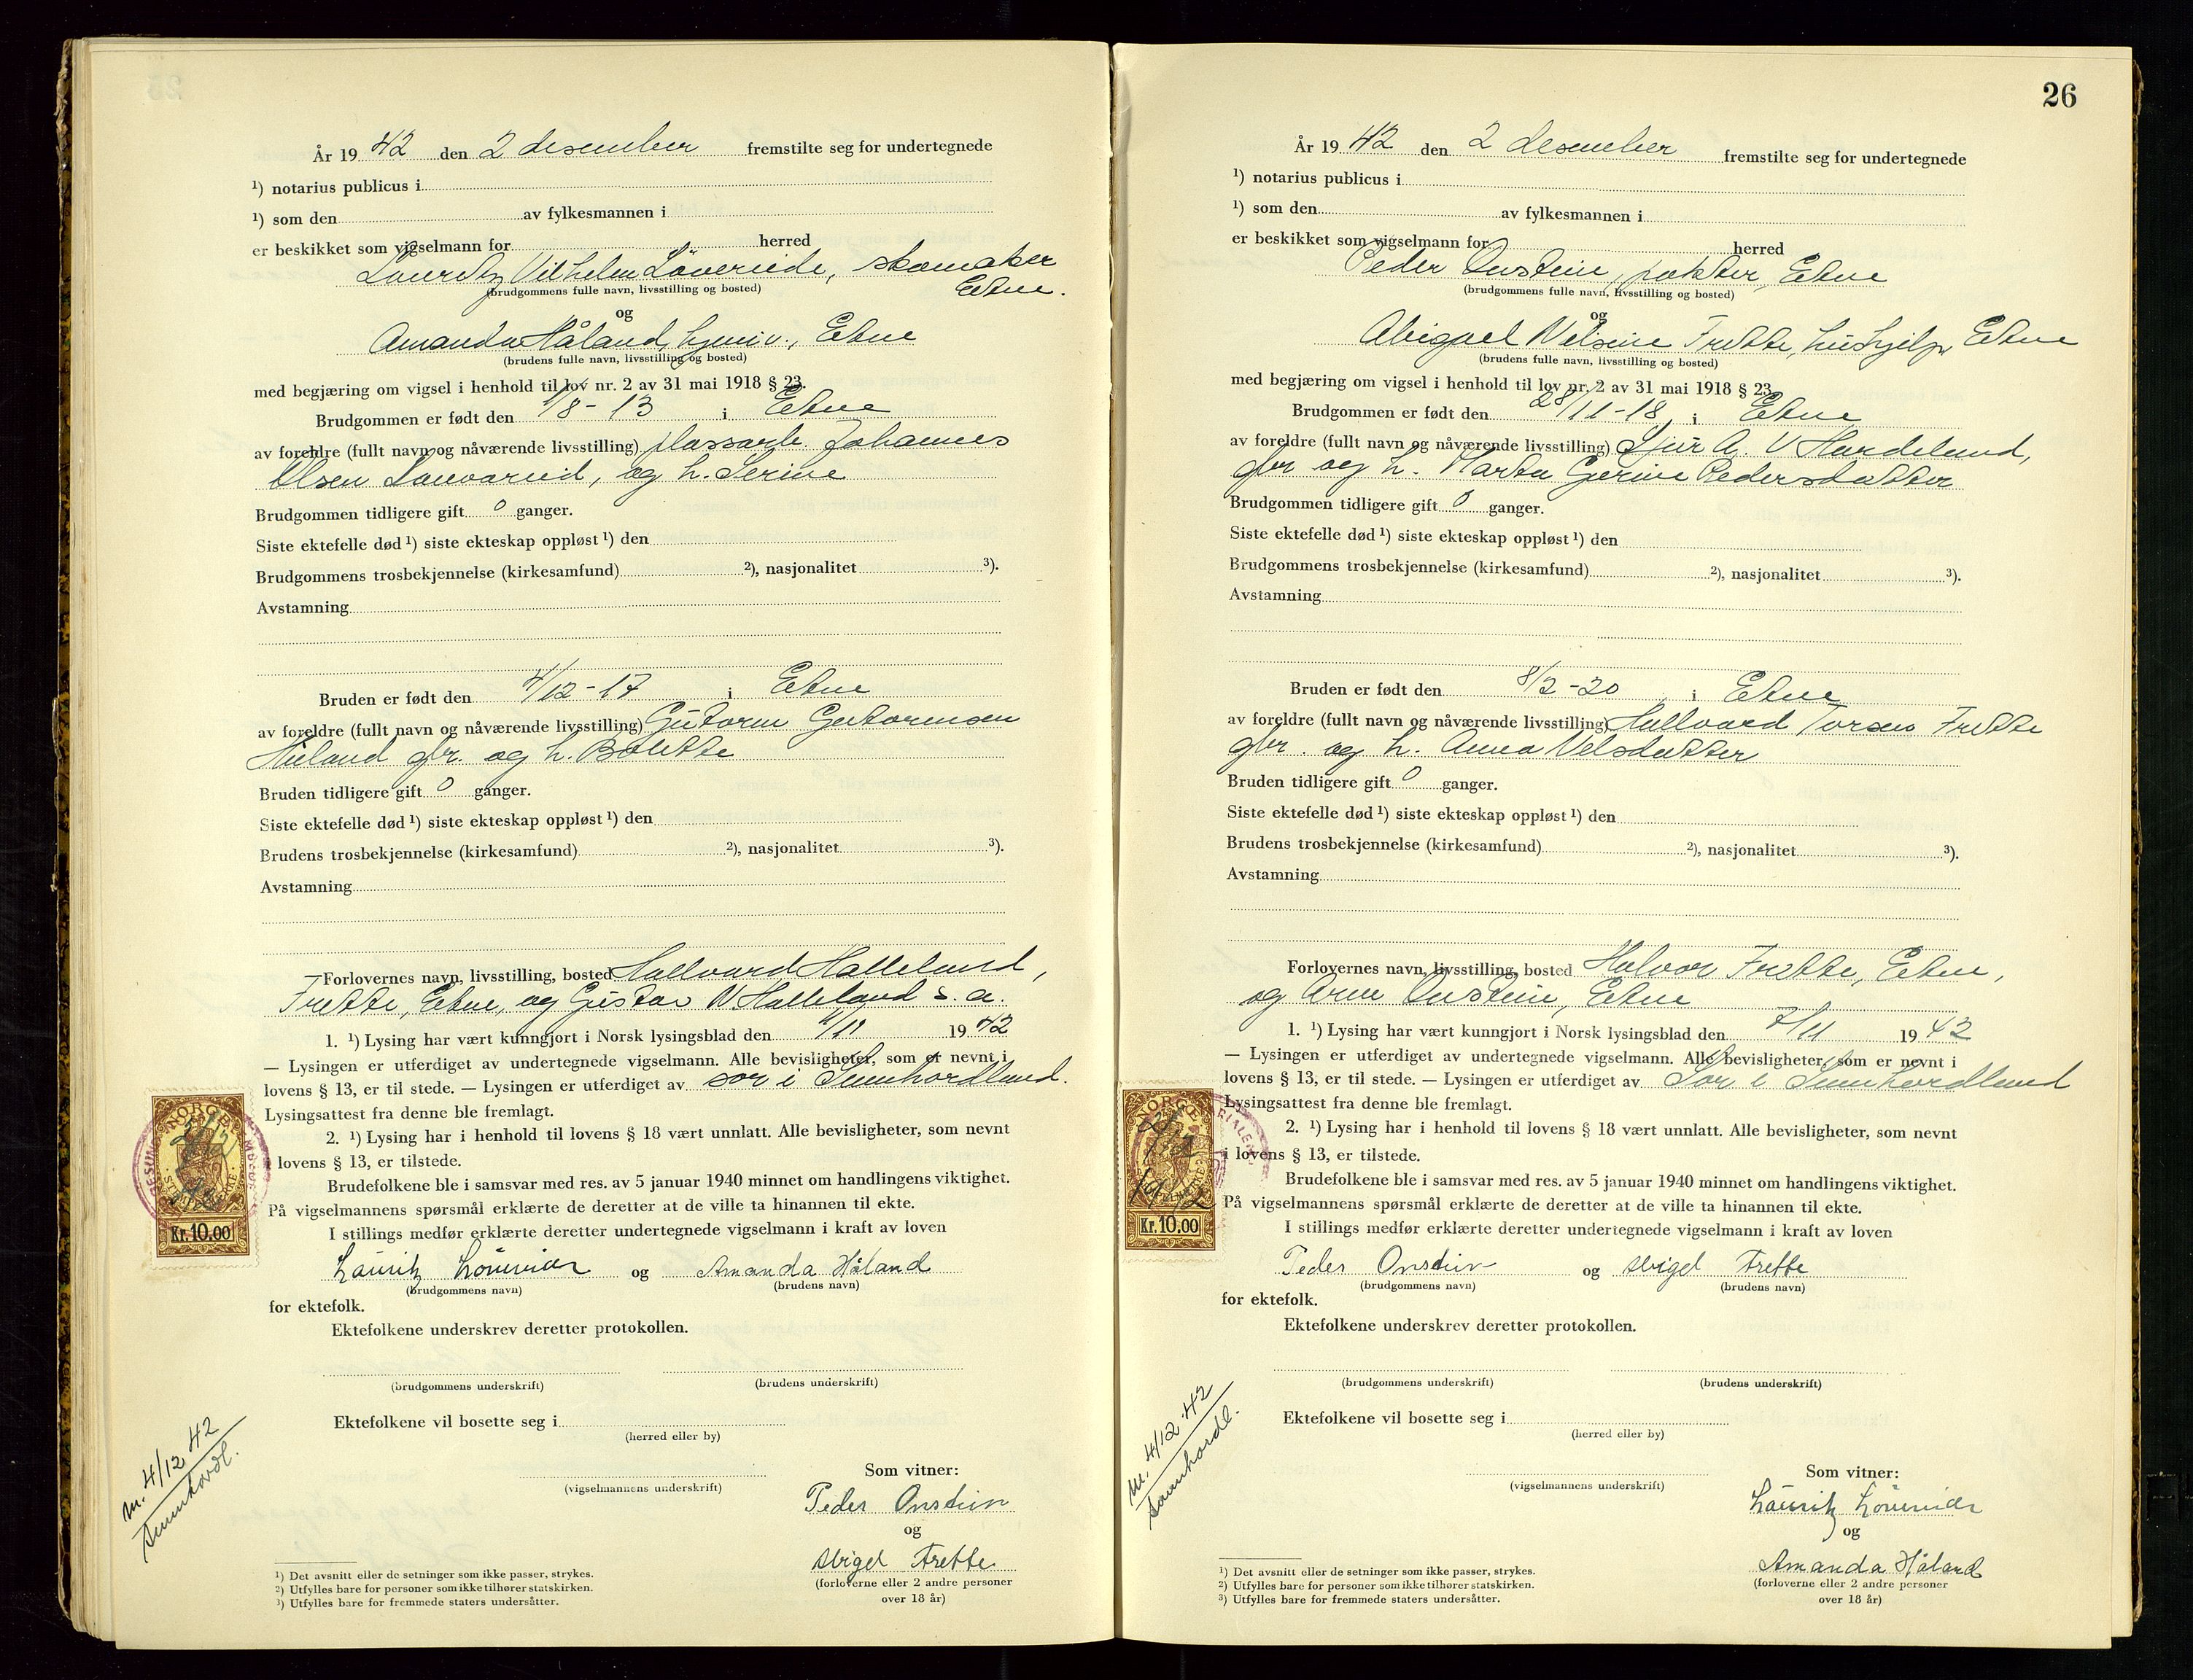 År 19 42 den 2 desember fremstilte seg for undertegnede
¹) notarius publicus i
¹) som den av fylkesmannen i
er beskikket som vigselmann for herred
Lauritz Vilhelm Løvereide, skomaker
Etne.
(brudgommens fulle navn, livsstilling og bosted)
og
Amanda Håland, hjemv., Etne
(brudens fulle navn, livsstilling og bosted)
med begjæring om vigsel i henhold til lov nr. 2 av 31 mai 1918 § 23.
Brudgommen er født den /8-13 i Etne
av foreldre (fullt navn og nåværende livsstilling) plassarb. Johannes
Olsen Løuvareid, og h. Serine
Brudgommen tidligere gift 0 ganger.
Siste ektefelle død ¹) siste ekteskap oppløst ¹) den
Brudgommens trosbekjennelse (kirkesamfund) ²), nasjonalitet ³).
Avstamning
Bruden er født den 4/12-17 i Etne
av foreldre (fullt navn og nåværende livsstilling) Gutorm Gutormsen
Håland gbr. og h. Bolette
Bruden tidligere gift 0 ganger.
Siste ektefelle død ¹) siste ekteskap oppløst ¹) den
Brudens trosbekjennelse (kirkesamfund) ²), nasjonalitet ³).
Avstamning
Forlovernes navn, livsstilling, bosted Hallvard Halleland,
Frette, Etne, og Gustav N Halleland s. a.
1. ¹) Lysing har vært kunngjort i Norsk lysingsblad den /11 19 42
— Lysingen er utferdiget av undertegnede vigselmann. Alle bevisligheter, som er nevnt i
lovens § 13, er til stede. — Lysingen er utferdiget av sor i Sunnhordland.
Lysingsattest fra denne ble fremlagt.
2. ¹) Lysing har i henhold til lovens § 18 vært unnlatt. Alle bevisligheter, som nevnt
i lovens § 13, er tilstede.
Brudefolkene ble i samsvar med res. av 5 januar 1940 minnet om handlingens viktighet.
På vigselmannens spørsmål erklærte de deretter at de ville ta hinannen til ekte.
I stillings medfør erklærte deretter undertegnede vigselmann i kraft av loven
NORGE
STEMPELMERKE
Kr. 10.00
Lauritz Løvereide og Amanda Håland
(brudgommens navn) (brudens navn)
for ektefolk.
Ektefolkene underskrev deretter protokollen.
(brudgommens underskrift) (brudens underskrift)
Ektefolkene vil bosette seg i
(herred eller by)
m. 4/12 42
Sunnhordl.
(vigselmannens underskrift)
Som vitner:
Peder Onstein
og
Abigel Frette
(forloverne eller 2 andre personer
over 18 år)
¹) Det avsnitt eller de setninger som ikke passer, strykes.
²) Utfylles bare for personer som ikke tilhører statskirken.
³) Utfylles bare for fremmede staters undersåtter.
26
År 19 42 den 2 desember fremstilte seg for undertegnede
¹) notarius publicus i
¹) som den av fylkesmannen i
er beskikket som vigselmann for herred
Peder Onstein, pakter, Etne
(brudgommens fulle navn, livsstilling og bosted)
og
Abigael Nelsine Frette, hushjelp, Etne
(brudens fulle navn, livsstilling og bosted)
med begjæring om vigsel i henhold til lov nr. 2 av 31 mai 1918 § 23.
Brudgommen er født den 28/11-18 i Etne
av foreldre (fullt navn og nåværende livsstilling) Sjur A. V Hardeland,
gbr og h. Marta Gerine Pedersdatter
Brudgommen tidligere gift 0 ganger.
Siste ektefelle død ¹) siste ekteskap oppløst ¹) den
Brudgommens trosbekjennelse (kirkesamfund) ²), nasjonalitet ³).
Avstamning
Bruden er født den 8/2-20 i Etne
av foreldre (fullt navn og nåværende livsstilling) Hallvard Torsen Frette
gbr. og h. Anna Nelsdatter
Bruden tidligere gift 0 ganger.
Siste ektefelle død ¹) siste ekteskap oppløst ¹) den
Brudens trosbekjennelse (kirkesamfund) ²), nasjonalitet ³).
Avstamning
Forlovernes navn, livsstilling, bosted Halvor Frette, Etne,
og Arne Onstein, Etne
1. ¹) Lysing har vært kunngjort i Norsk lysingsblad den 7/11 19 42
— Lysingen er utferdiget av undertegnede vigselmann. Alle bevisligheter, som er nevnt i
lovens § 13, er til stede. — Lysingen er utferdiget av Sor i Sunnhordland
Lysingsattest fra denne ble fremlagt.
2. ¹) Lysing har i henhold til lovens § 18 vært unnlatt. Alle bevisligheter, som nevnt
i lovens § 13, er tilstede.
Brudefolkene ble i samsvar med res. av 5 januar 1940 minnet om handlingens viktighet.
På vigselmannens spørsmål erklærte de deretter at de ville ta hinannen til ekte.
I stillings medfør erklærte deretter undertegnede vigselmann i kraft av loven
NORGE
STEMPELMERKE
Kr. 10.00
Peder Onstein og Abigel Frette
(brudgommens navn) (brudens navn)
for ektefolk.
Ektefolkene underskrev deretter protokollen.
(brudgommens underskrift) (brudens underskrift)
Ektefolkene vil bosette seg i
(herred eller by)
m. 4/12 42
Sunnhordl.
(vigselmannens underskrift)
Som vitner:
Lauritz Løvereide
og
Amanda Håland
(forloverne eller 2 andre personer
over 18 år)
¹) Det avsnitt eller de setninger som ikke passer, strykes.
²) Utfylles bare for personer som ikke tilhører statskirken.
³) Utfylles bare for fremmede staters undersåtter.